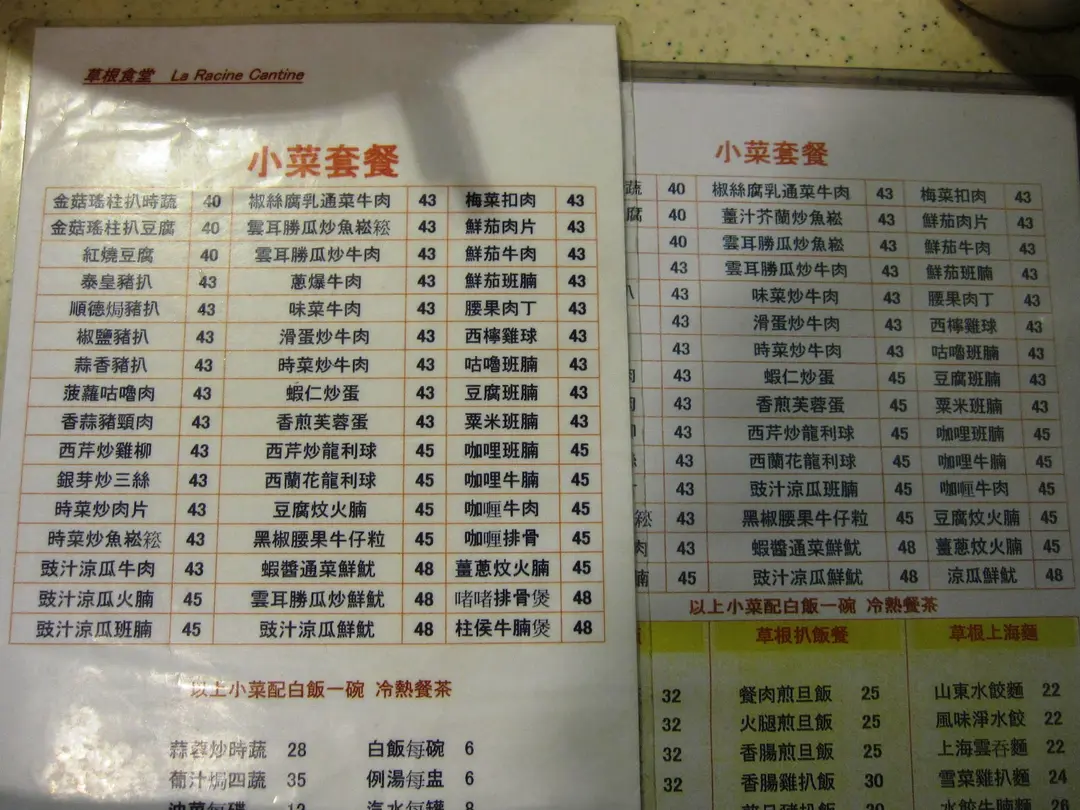 草根食堂 La Racine Cantine
小菜套餐
金菇瑤柱扒時蔬 40 椒絲腐乳通菜牛肉 43 梅菜扣肉 43
金菇瑤柱扒豆腐 40 雲耳勝瓜炒魚崧鬆 43 鮮茄肉片 43
紅燒豆腐 40 雲耳勝瓜炒牛肉 43 鮮茄牛肉 43
泰皇豬扒 43 蔥爆牛肉 43 鮮茄班腩 43
順德焗豬扒 43 味菜牛肉 43 腰果肉丁 43
椒鹽豬扒 43 滑蛋炒牛肉 43 西檸雞球 43
蒜香豬扒 43 時菜炒牛肉 43 咕嚕班腩 43
菠蘿咕嚕肉 43 蝦仁炒蛋 43 豆腐班腩 43
香蒜豬頸肉 43 香煎芙蓉蛋 43 粟米班腩 43
西芹炒雞柳 43 西芹炒龍利球 45 咖哩班腩 45
銀芽炒三絲 43 西蘭花龍利球 45 咖哩牛腩 45
時菜炒肉片 43 豆腐炆火腩 45 咖喱牛肉 45
時菜炒魚崧鬆 43 黑椒腰果牛仔粒 45 咖喱排骨 45
豉汁涼瓜牛肉 43 蝦醬通菜鮮魷 48 薑蔥炆火腩 45
豉汁涼瓜火腩 45 雲耳勝瓜炒鮮魷 48 啫啫排骨煲 48
豉汁涼瓜班腩 45 豉汁涼瓜鮮魷 48 柱侯牛腩煲 48
以上小菜配白飯一碗 冷熱餐茶
蒜蓉炒時蔬 28 白飯每碗 6
葡汁焗四蔬 35 例湯每盅 6
油菜每碟 12 汽水每罐 8
小菜套餐
蔬 40 椒絲腐乳通菜牛肉 43 梅菜扣肉 43
腐 40 薑汁芥蘭炒魚崧 43 鮮茄肉片 43
40 雲耳勝瓜炒魚崧 43 鮮茄牛肉 43
43 雲耳勝瓜炒牛肉 43 鮮茄班腩 43
扒 43 味菜炒牛肉 43 腰果肉丁 43
43 滑蛋炒牛肉 43 西檸雞球 43
43 時菜炒牛肉 43 咕嚕班腩 43
肉 43 蝦仁炒蛋 45 豆腐班腩 43
43 香煎芙蓉蛋 45 粟米班腩 43
43 西芹炒龍利球 45 咖哩班腩 45
43 西蘭花龍利球 45 咖哩牛腩 45
43 豉汁涼瓜班腩 45 咖喱牛肉 45
鬆 43 黑椒腰果牛仔粒 45 豆腐炆火腩 45
肉 43 蝦醬通菜鮮魷 48 薑蔥炆火腩 45
腩 45 豉汁涼瓜鮮魷 48 涼瓜鮮魷 48
以上小菜配白飯一碗 冷熱餐茶
草根扒飯餐 草根上海麵
32 餐肉煎旦飯 25 山東水餃麵 22
32 火腿煎旦飯 25 風味淨水餃 22
32 香腸煎旦飯 25 上海雲吞麵 22
32 香腸雞扒飯 30 雪菜雞扒麵 24
水餃牛腩麵 26